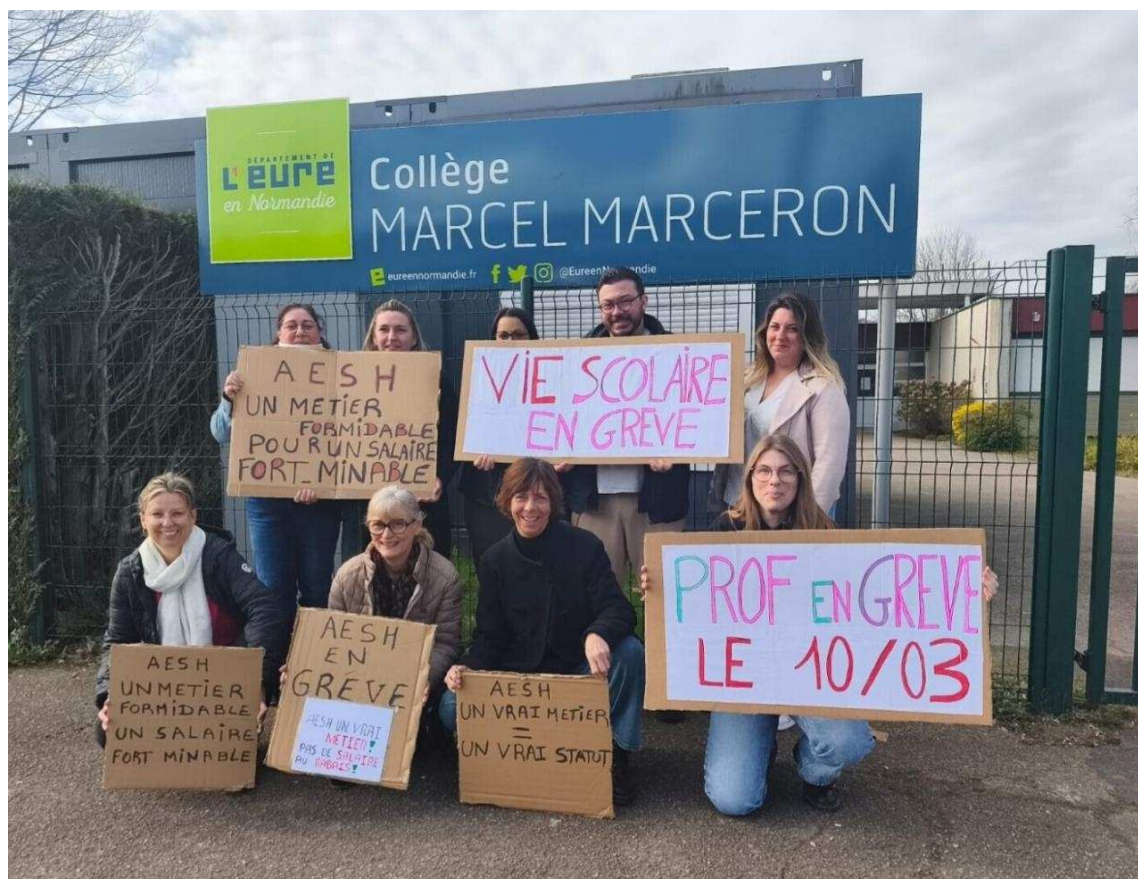 DÉPARTEMENT DE
L'eure
en Normandie
Collège
MARCEL MARCERON
eureennormandie.fr
@EureenNormandie
AESH
UN METIER
FORMIDABLE
POUR UN SALAIRE
FORT_MINABLE
VIE SCOLAIRE
EN GREVE
AESH
UN METIER
FORMIDABLE
UN SALAIRE
FORT MINABLE
AESH
EN
GRÈVE
AESH UN VRAI
MÉTIER!
PAS DE SALAIRE
AU RABAIS!
AESH
UN VRAI METIER
=
UN VRAI STATUT
PROF EN GREVE
LE 10/03